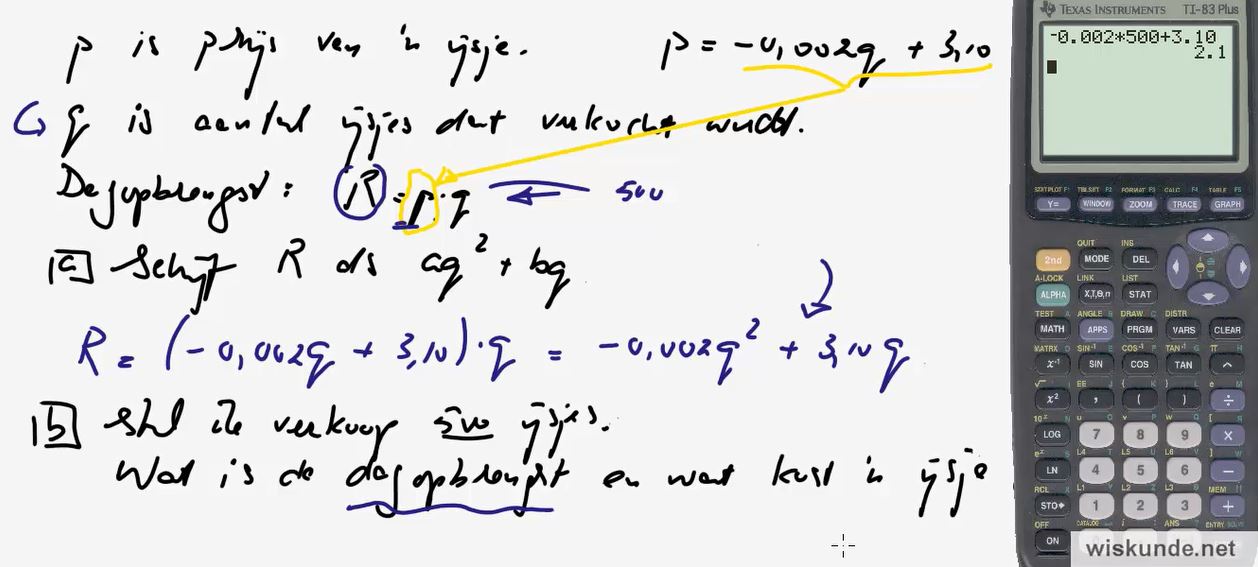 p is prijs van 'n ijsje. p = -0,002q + 3,10
q is aantal ijsjes dat verkocht wordt.
Dagopbrengst: R = p · q 500
a Schrijf R als aq² + bq
R = (-0,002q + 3,10) · q = -0,002q² + 3,10q
b Stel ik verkoop 500 ijsjes.
Wat is de dagopbrengst en wat kost 'n ijsje
TEXAS INSTRUMENTS TI-83 Plus
-0.002*500+3.10
2.1
STAT PLOT F1 TBLSET F2 FORMAT F3 CALC F4 TABLE F5
Y= WINDOW ZOOM TRACE GRAPH
QUIT INS
2nd MODE DEL
A-LOCK LINK LIST
ALPHA X,T,θ,n STAT
TEST A ANGLE B DRAW C DISTR
MATH APPS PRGM VARS CLEAR
MATRX D SIN⁻¹ E COS⁻¹ F TAN⁻¹ G π H
x⁻¹ SIN COS TAN ^
√ I EE J { K } L e M
x² , ( ) ÷
10ˣ N u O v P w Q [ R
LOG 7 8 9 ×
eˣ S L4 T L5 U L6 V ] W
LN 4 5 6 −
RCL X L1 Y L2 Z L3 θ MEM "
STO▸ 1 2 3 +
OFF CATALOG ANS ? ENTRY SOLVE
ON
wiskunde.net